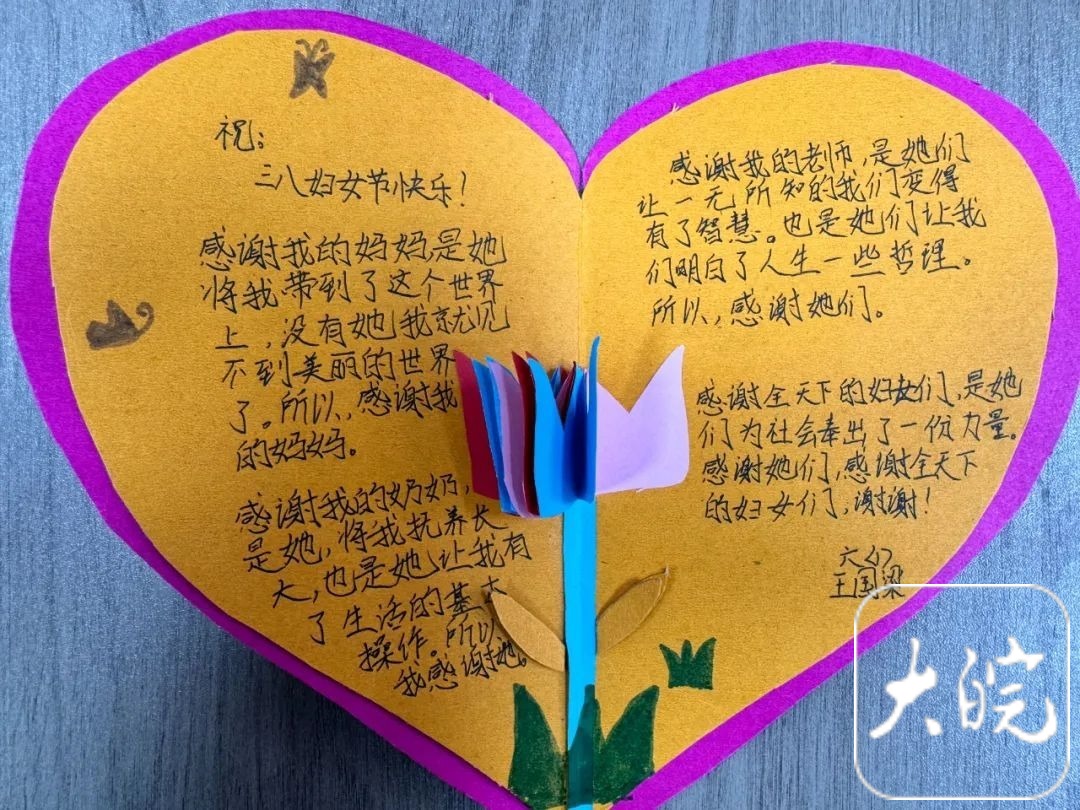 祝：
三八妇女节快乐！
感谢我的妈妈，是她
将我带到了这个世界
上，没有她我就见
不到美丽的世界
了。所以，感谢我
的妈妈。
感谢我的奶奶，
是她，将我抚养长
大，也是她让我有
了生活的基本
操作。所以
我感谢她。
感谢我的老师，是她们
让一无所知的我们变得
有了智慧。也是她们让我
们明白了人生一些哲理。
所以，感谢她们。
感谢全天下的妇女们，是她
们为社会奉出了一份力量。
感谢她们，感谢全天下
的妇女们，谢谢！
王国梁
大皖